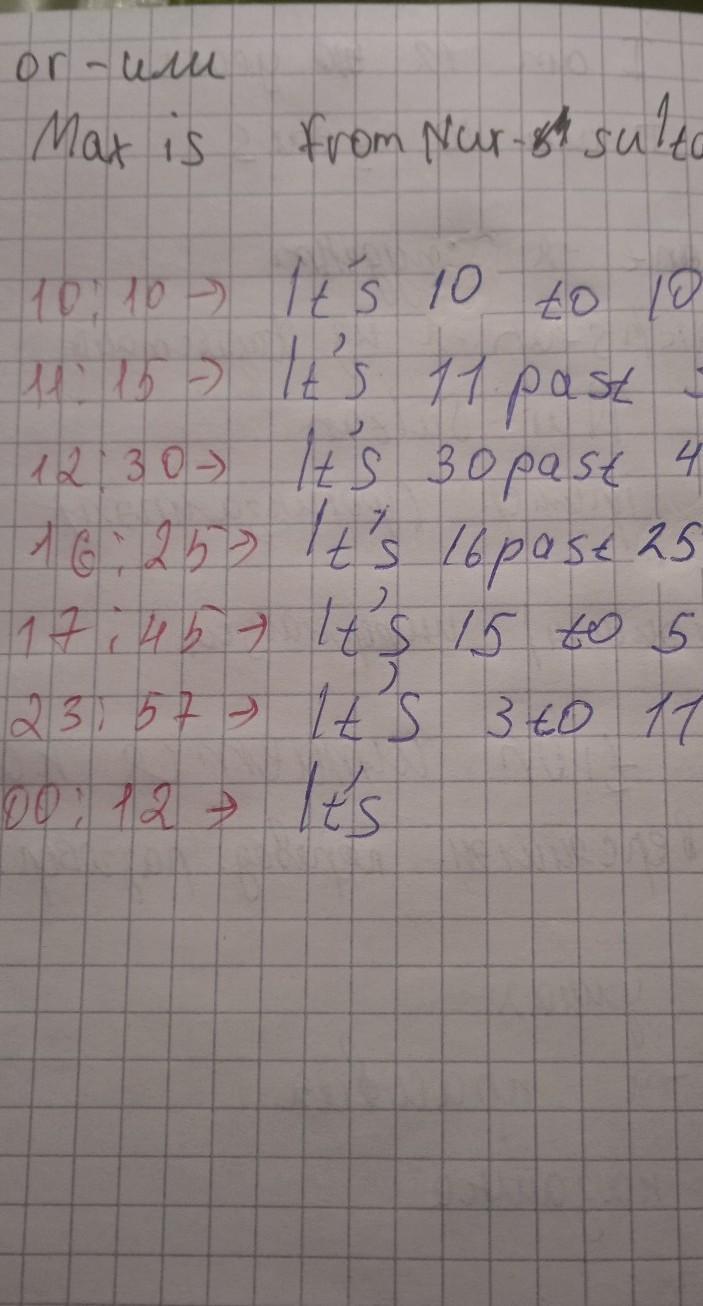 or - или
Max is from Nur-sulta
10:10 → It's 10 to 10
11:15 → It's 11 past
12:30 → It's 30 past 4
16:25 → It's 16 past 25
17:45 → It's 15 to 5
23:57 → It's 3 to 11
00:12 → It's